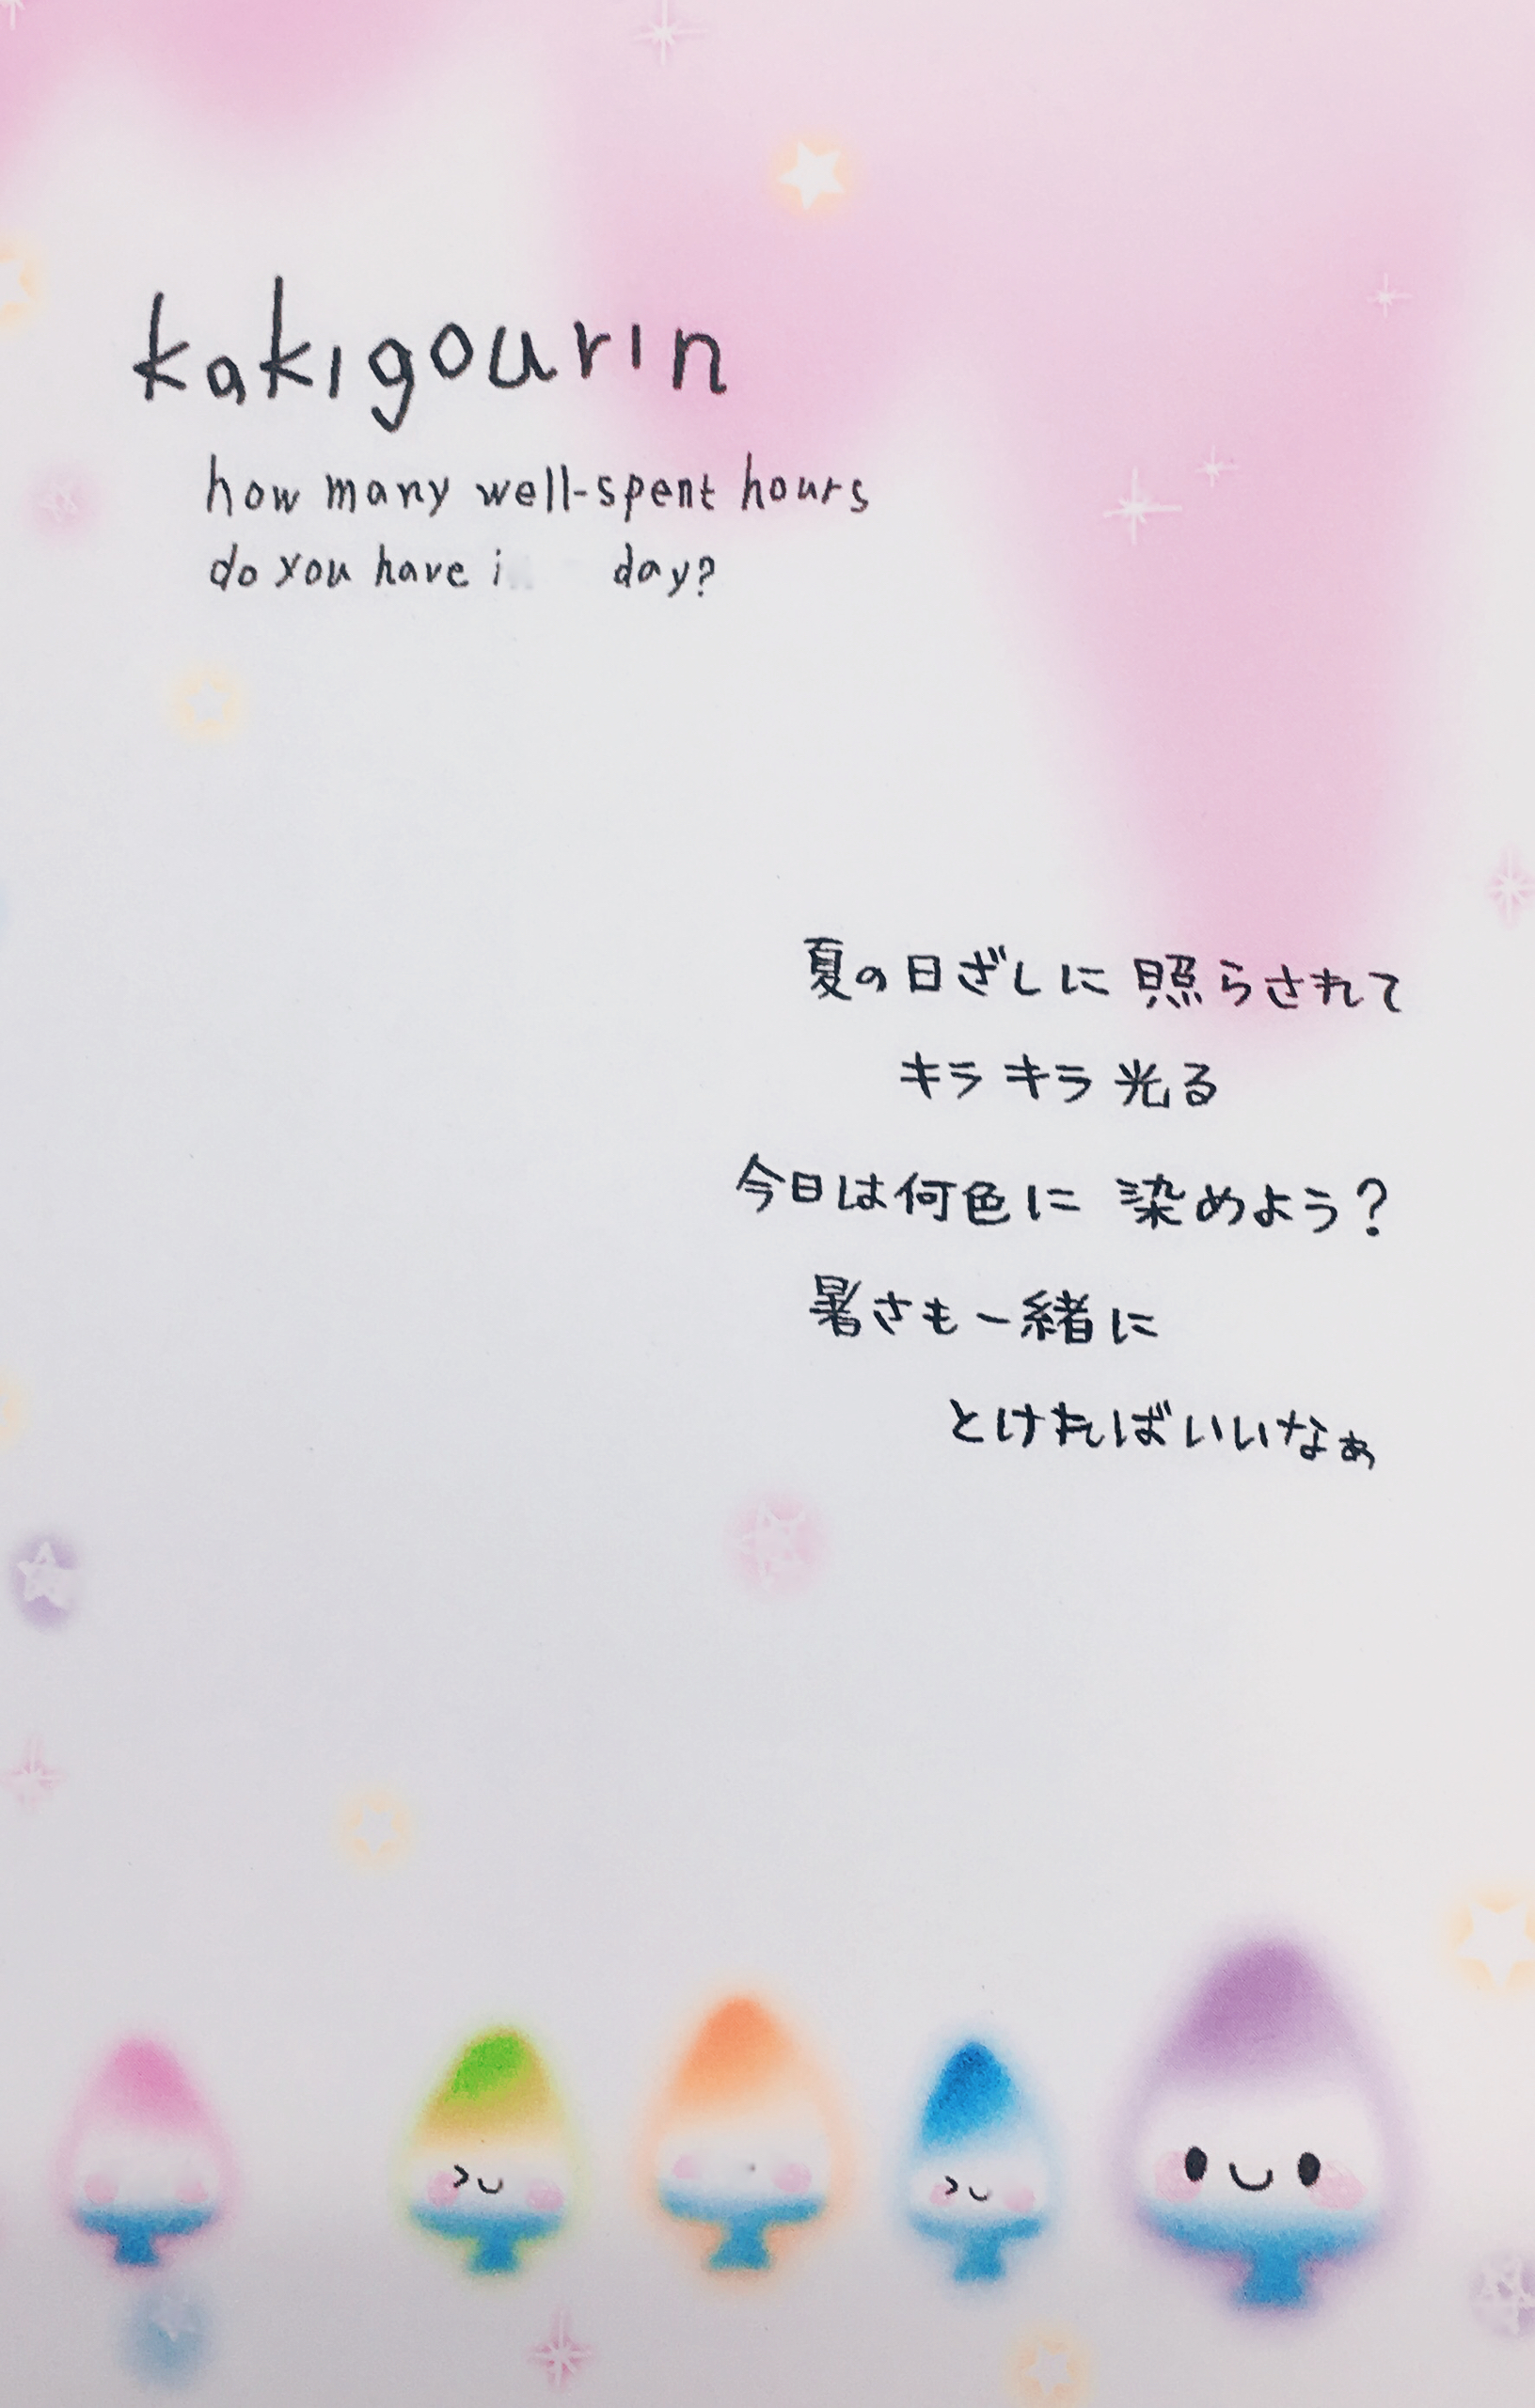 kakigourin
how many well-spent hours
do you have i day?
夏の日ざしに照らされて
キラキラ光る
今日は何色に染めよう?
暑さも一緒に
とければいいなぁ